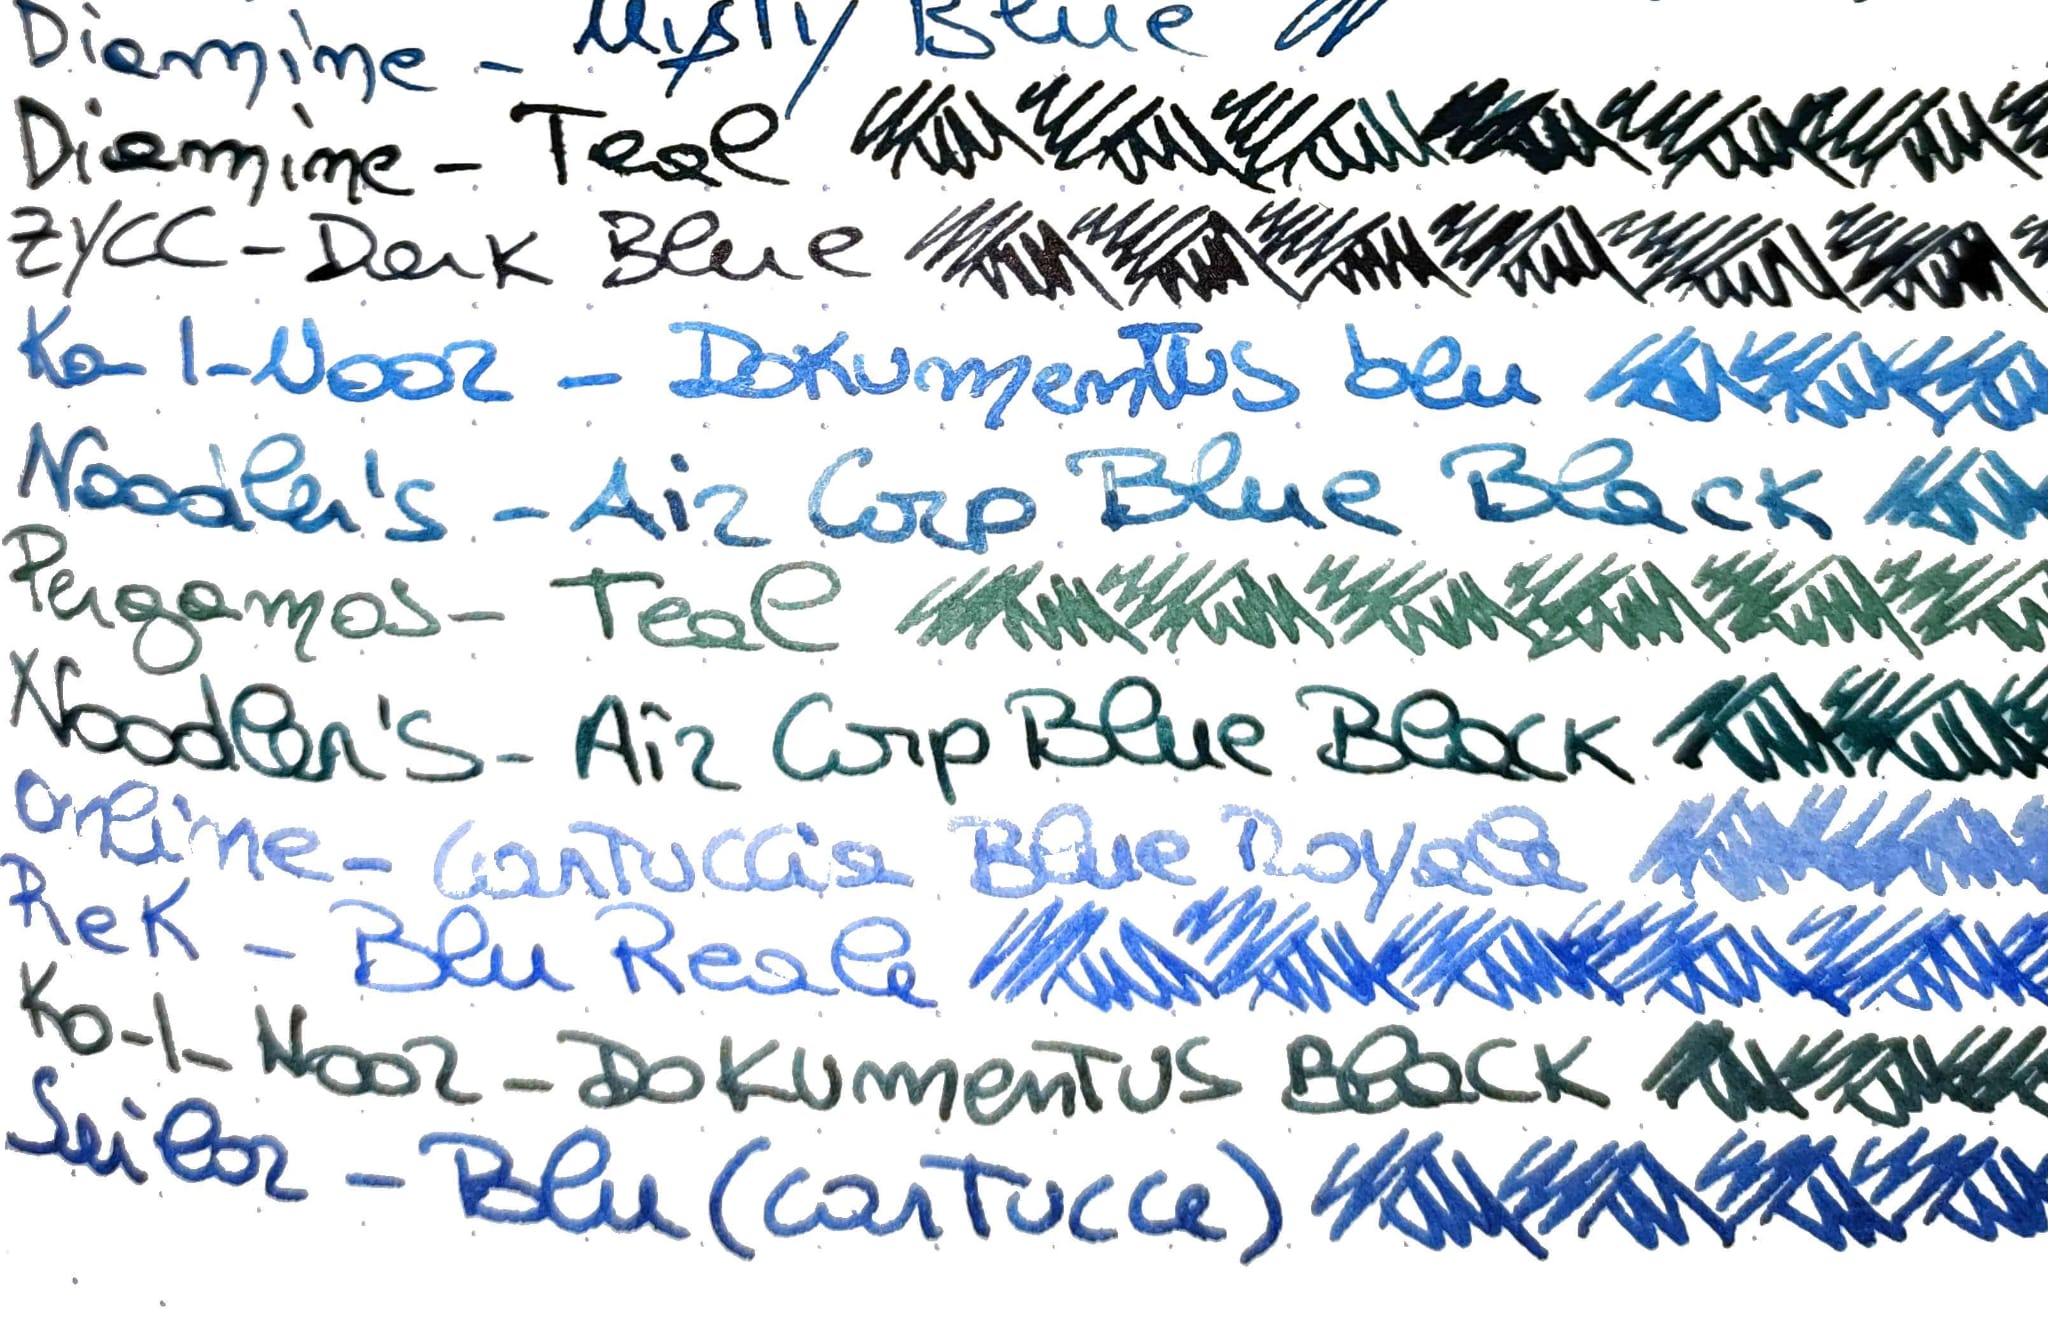 Diamine - Misty Blue
Diamine - Teal
ZYCC - Dark Blue
Ko-I-Noor - Dokumentus blu
Noodler's - Air Corp Blue Black
Pergamos - Teal
Noodler's - Air Corp Blue Black
Online - Cartuccia Blue Royale
Rek - Blu Reale
Ko-I-Noor - Dokumentus Black
Sailor - Blu (cartucce)